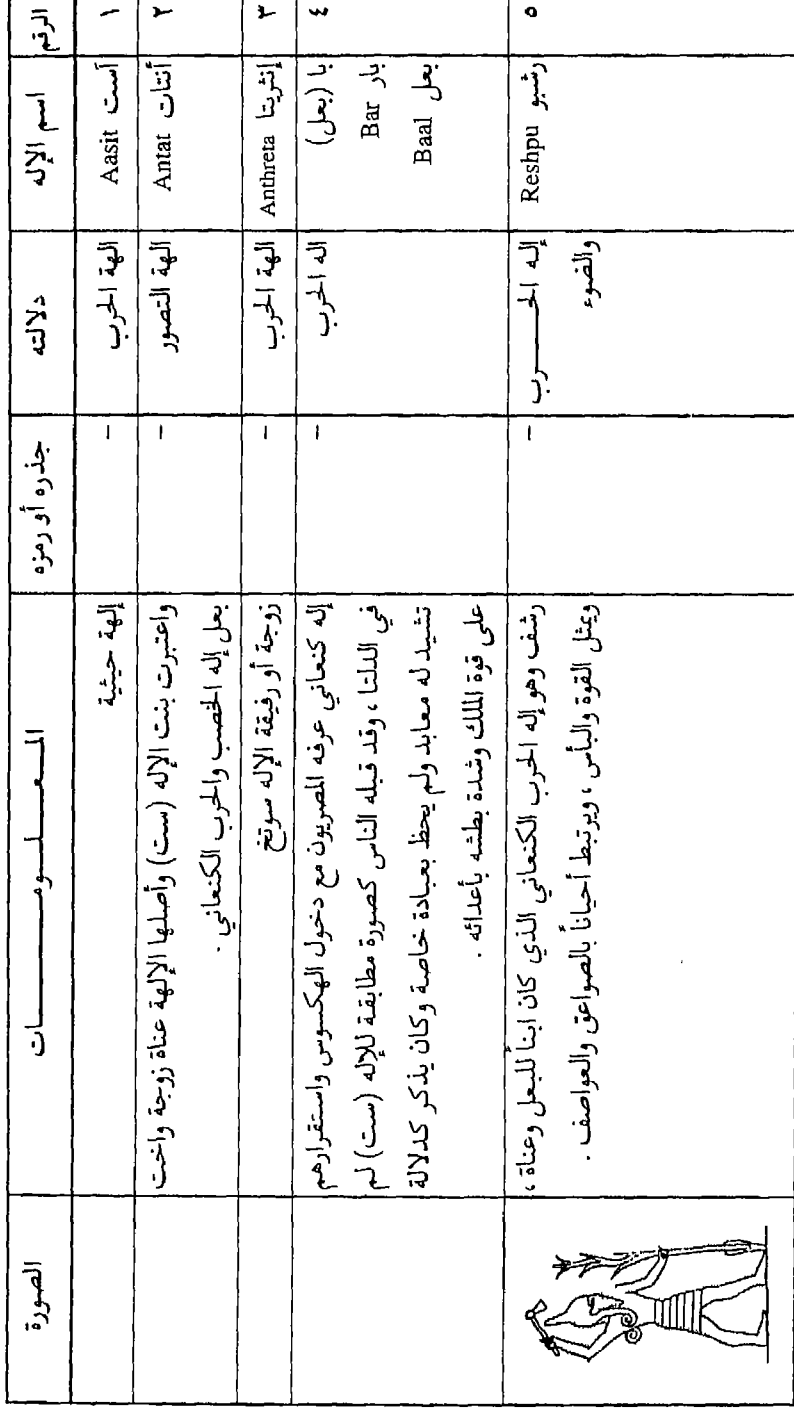 الرقم	اسم الإله	دلالته	جذره أو رمزه	المعلومات	الصورة
١	آست Aasit	الهة الحرب	-	إلهة حيثية
٢	أنتات Antat	الهة التصور	-	واعتبرت بنت الإله (ست) وأصلها الإلهة عناة زوجة واخت
بعل إله الخصب والحرب الكنعاني .
٣	إنثريتا Anthreta	الهة الحرب	-	زوجة أو رفيقة الإله سوتخ
٤	با (بعل)	اله الحرب	-	إله كنعاني عرفه المصريون مع دخول الهكسوس واستقرارهم
بار Bar	في الدلتا ، وقد قبله الناس كصورة مطابقة للإله (ست) لم
بعل Baal	تشيد له معابد ولم يحظ بعبادة خاصة وكان يذكر كدلالة
على قوة الملك وشدة بطشه بأعدائه .
٥	رشبو Reshpu	إله الحرب	-	رشف وهو إله الحرب الكنعاني الذي كان ابناً للبعل وعناة ،
والضوء	ويمثل القوة والبأس ، ويرتبط أحياناً بالصواعق والعواصف .